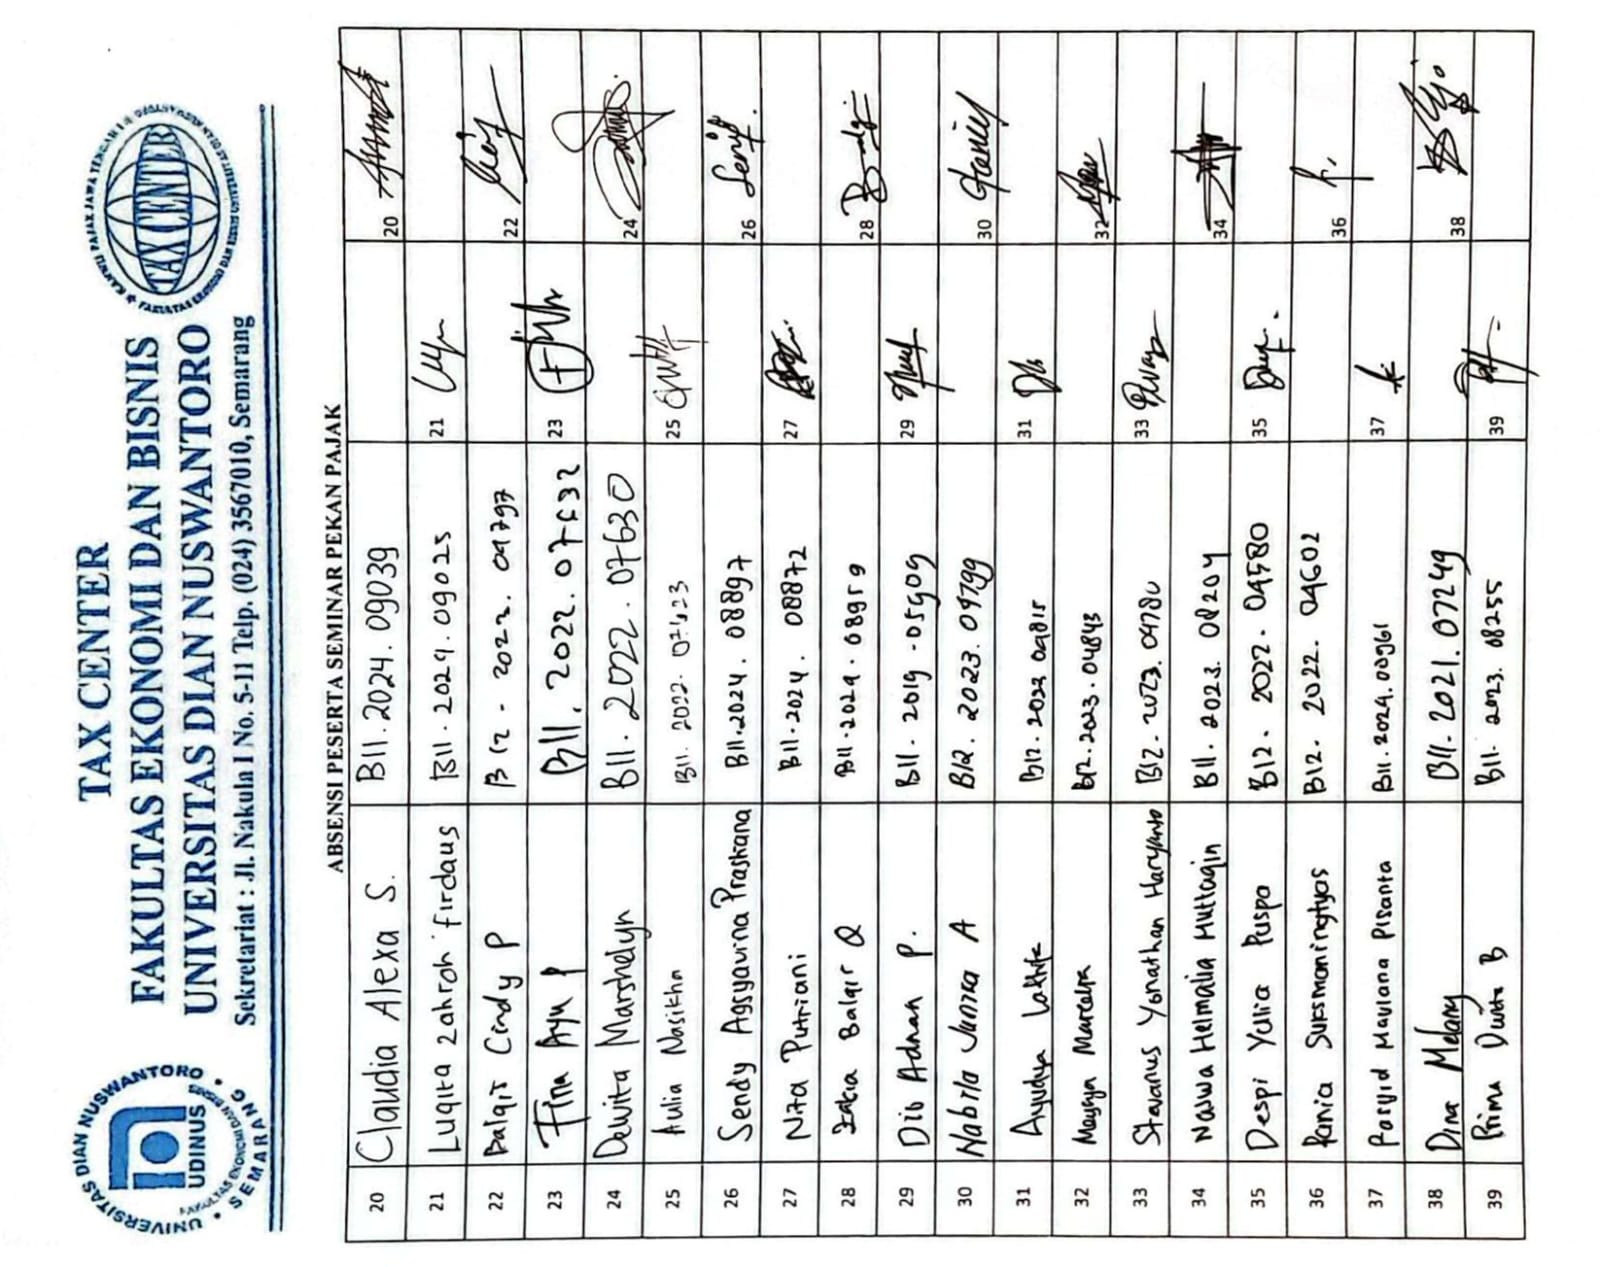 TAX CENTER
FAKULTAS EKONOMI DAN BISNIS
UNIVERSITAS DIAN NUSWANTORO
Sekretariat : Jl. Nakula I No. 5-11 Telp. (024) 3567010, Semarang
UNIVERSITAS DIAN NUSWANTORO
UDINUS
FAKULTAS EKONOMI DAN BISNIS
SEMARANG
KANWIL PAJAK JAWA TENGAH I
TAX CENTER
ABSENSI PESERTA SEMINAR PEKAN PAJAK
20 Claudia Alexa S. B11.2024.09039 20
21 Luqita Zahroh Firdaus B11.2024.09025 21
22 Balqit Cindy P B12-2022.04797 22
23 Fina Ayu P B11.2022.07632 23
24 Dewita Marshelyn B11.2022.07630 24
25 Aulia Nasikha B11.2022.07423 25
26 Sendy Agsyavina Praskana B11.2024.08897 26
27 Nita Putriani B11.2024.08872 27
28 Zakia Balqir Q B11.2024.08959 28
29 Dio Adnan P. B11.2019.05909 29
30 Nabila Junira A B12.2023.04799 30
31 Ayudya Lathife B12.2023.04815 31
32 Maysya Marcelya B12.2023.04843 32
33 Stevanus Yonathan Haryanto B12.2023.04780 33
34 Nawwa Helmalia Muttaqin B11.2023.08204 34
35 Despi Yulia Puspo B12.2022.04580 35
36 Rania Suksmaningtyas B12.2022.04602 36
37 Rasyid Maulana Pisanta B11.2024.00961 37
38 Dina Melany B11.2021.07249 38
39 Prima Dwita B B11.2023.08255 39